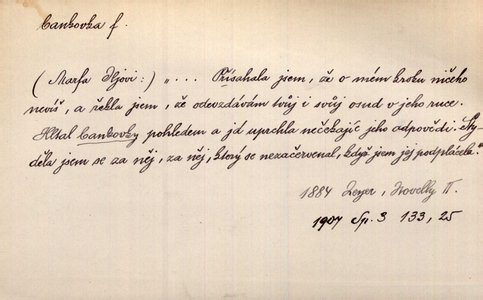 Cankovka f.
(Marfa Iljovi:) „... Přísahala jsem, že o mém kroku ničeho
nevíš, a řekla jsem, že odevzdávám tvůj i svůj osud v jeho ruce.
Hltal Cankovky pohledem a já uprchla nečekajíc jeho odpovědi. Sty-
děla jsem se za něj, za něj, který se nezačervenal, když jsem jej podplácela."
1884 Zeyer, Novelly II.
1907 Sp. 3 133, 25